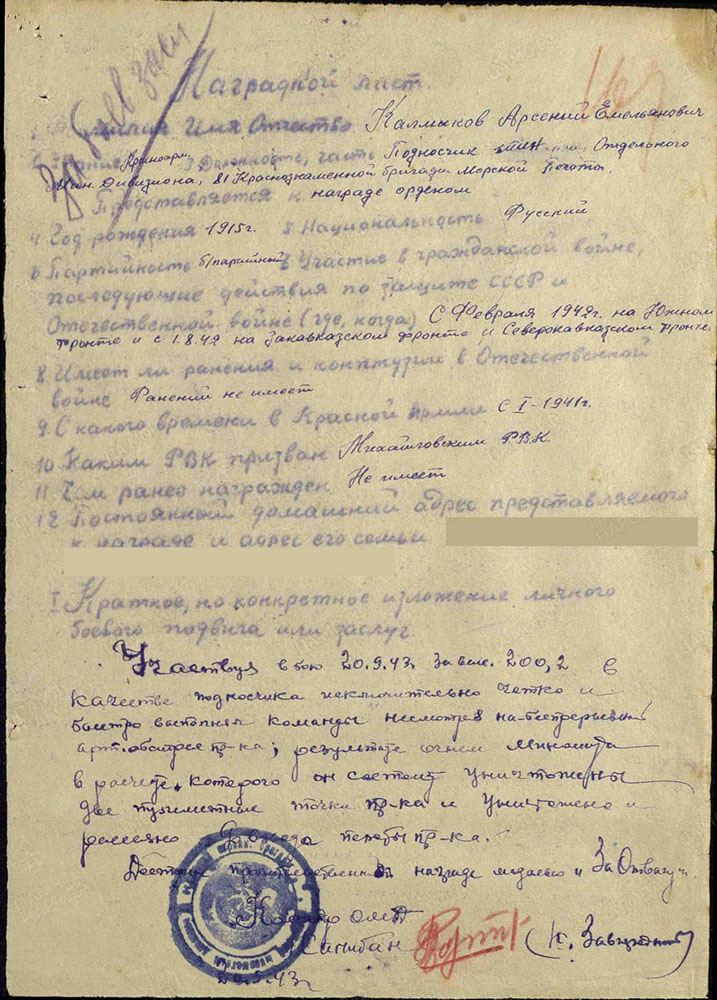 За боев засл
Наградной лист
1 Фамилия Имя Отчество Калмыков Арсений Емельянович
2 Звание Красноарм. 3 Должность, часть Подносчик Отдельного
Мин. Дивизиона, 81 Краснознаменной бригады Морской Пехоты.
Представляется к награде орденом
4 Год рождения 1915г. 5 Национальность Русский
6 Партийность б/партийный Участие в гражданской войне,
последующие действия по защите СССР и
Отечественной войне (где, когда) С Февраля 1942г. на Южном
фронте и с 1.8.42 на Закавказском фронте и Северокавказском фронте.
8 Имеет ли ранения и контузии в Отечественной
войне Ранений не имеет
9 С какого времени в Красной Армии с I-1941г.
10 Каким РВК призван РВК.
11 Чем ранее награжден Не имеет
12 Постоянный домашний адрес представляемого
к награде и адрес его семьи
I Краткое, но конкретное изложение личного
боевого подвига или заслуг
Участвуя в бою 20.9.43. за выс. 200,2 в
качестве подносчика исключительно четко и
быстро выполнял команды несмотря на беспрерывный
арт. обстрел пр-ка; результате огнем миномета
в расчете, которого он состоит уничтожены
две пулеметные точки пр-ка и уничтожено и
рассеяно до взвода пехоты пр-ка.
Достоин правительственной награде медалью „За Отвагу"
Командир ОМД